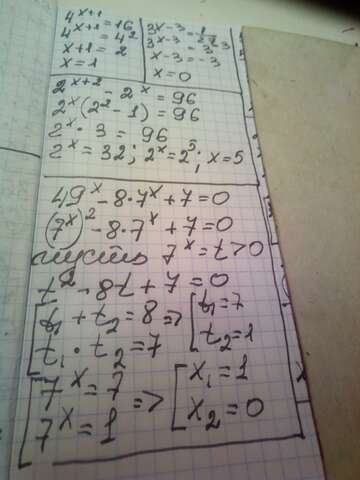 4^(x+1)
4^(x+1) = 16
= 4²
x+1 = 2
x = 1
3^(x-3) = 1
3^(x-3) = 3^(-3)
x-3 = -3
x = 0
2^(x+2) - 2^x = 96
2^x(2²-1) = 96
2^x · 3 = 96
2^x = 32; 2^x = 2^5; x = 5
49^x - 8·7^x + 7 = 0
(7^x)² - 8·7^x + 7 = 0
пусть 7^x = t > 0
t² - 8t + 7 = 0
[ t₁ + t₂ = 8 => [ t₁ = 7
t₁ · t₂ = 7 t₂ = 1
[ 7^x = 7 => [ x₁ = 1
7^x = 1 x₂ = 0